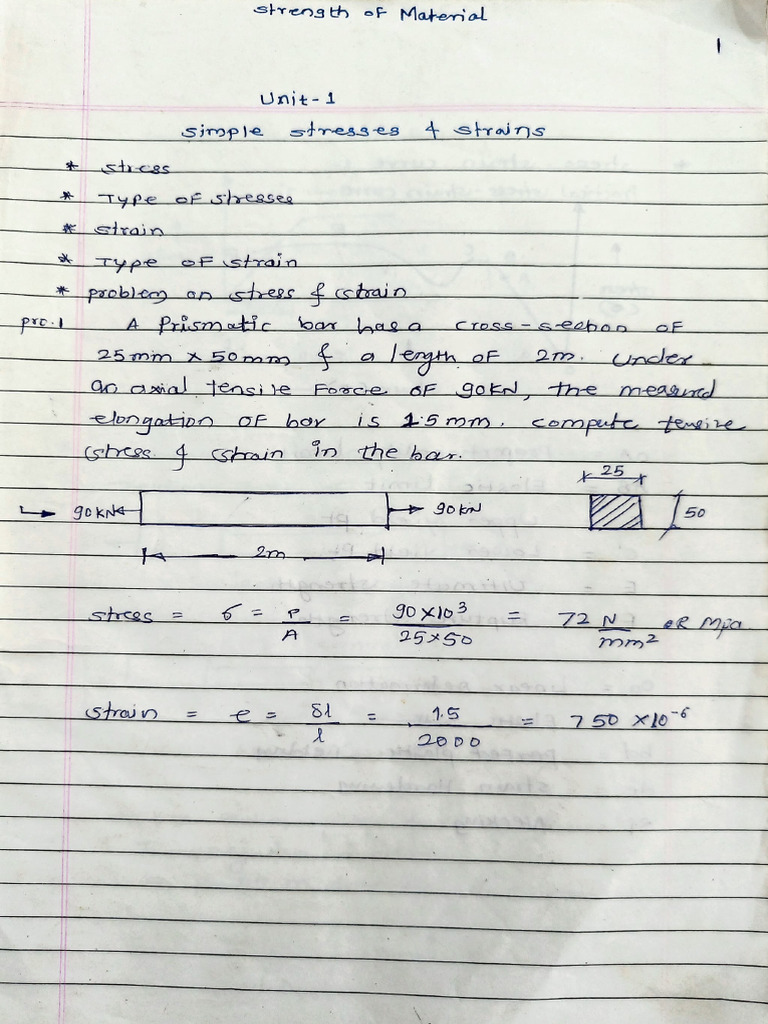 Strength of Material
1
Unit-1
Simple stresses & strains
* stress
* Type of stresses
* strain
* Type of strain
* problem on stress & strain
pro.1 A Prismatic bar has a cross-section of
25mm × 50mm & a length of 2m. Under
an axial tensile Force of 90KN, the measured
elongation of bar is 1.5mm. compute tensive
stress & strain in the bar.
25
90KN 90KN 50
2m
stress = σ = P/A = 90×10³/25×50 = 72 N/mm² OR Mpa
strain = e = δl/l = 1.5/2000 = 750 ×10⁻⁶